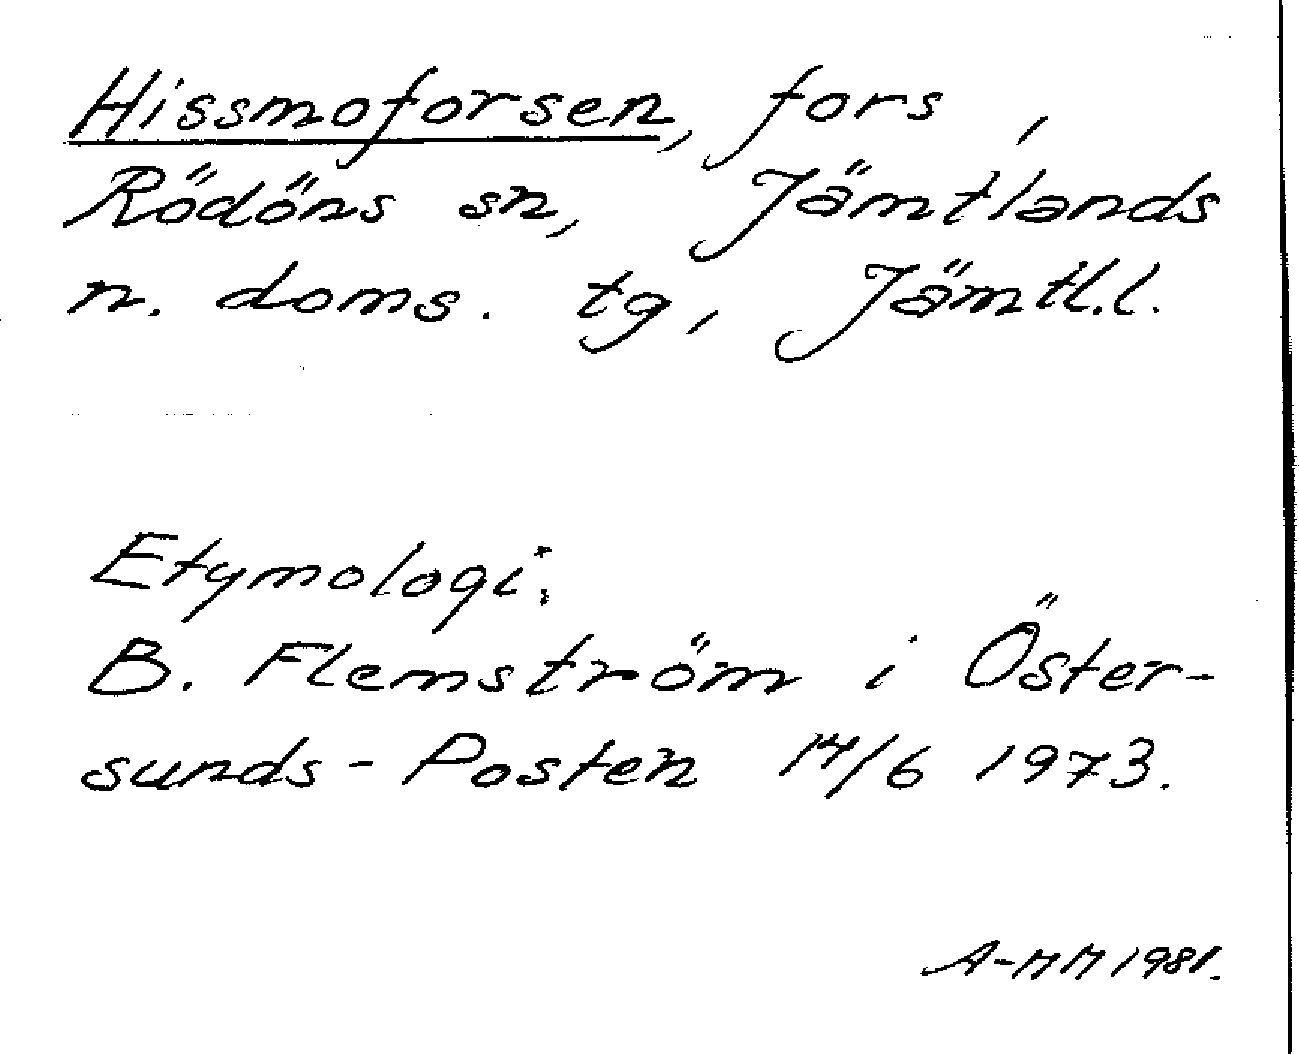 Hissmoforsen, fors,
Rödöns sn, Jämtlands
n. doms. tg, Jämtl.l.
Etymologi:
B. Flemström i Öster-
sunds-Posten 14/6 1973.
A-MM 1981.